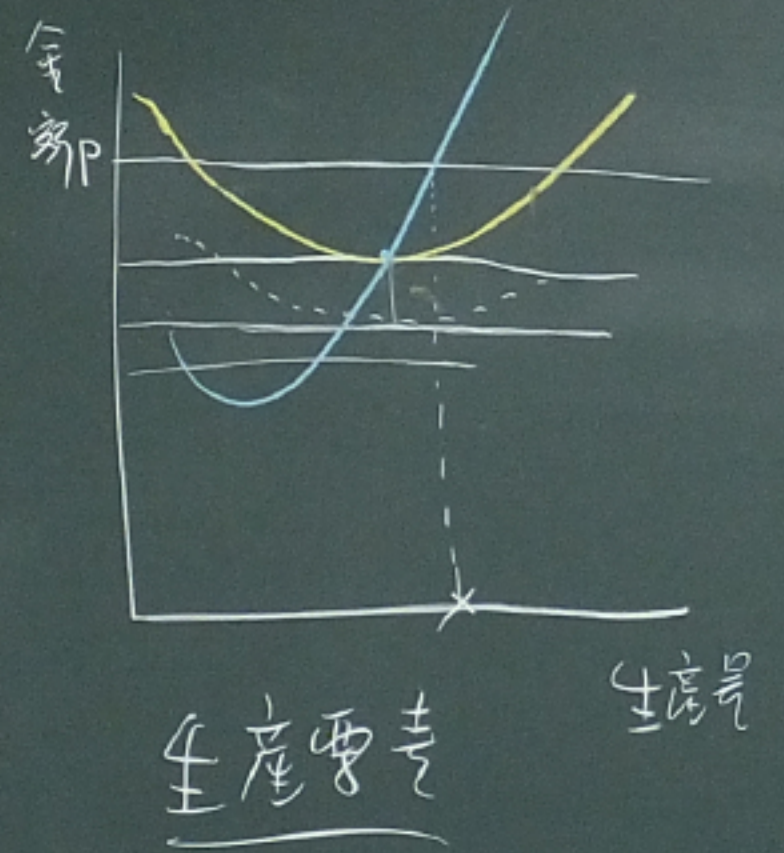 金額
P
生産量
生産要素